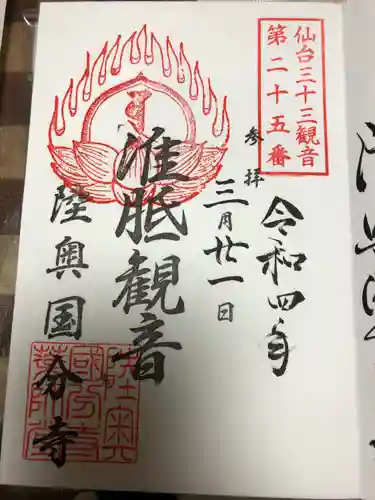 仙台三十三観音
第二十五番
令和四年
参拝
三月廿一日
准胝観音
陸奥国分寺